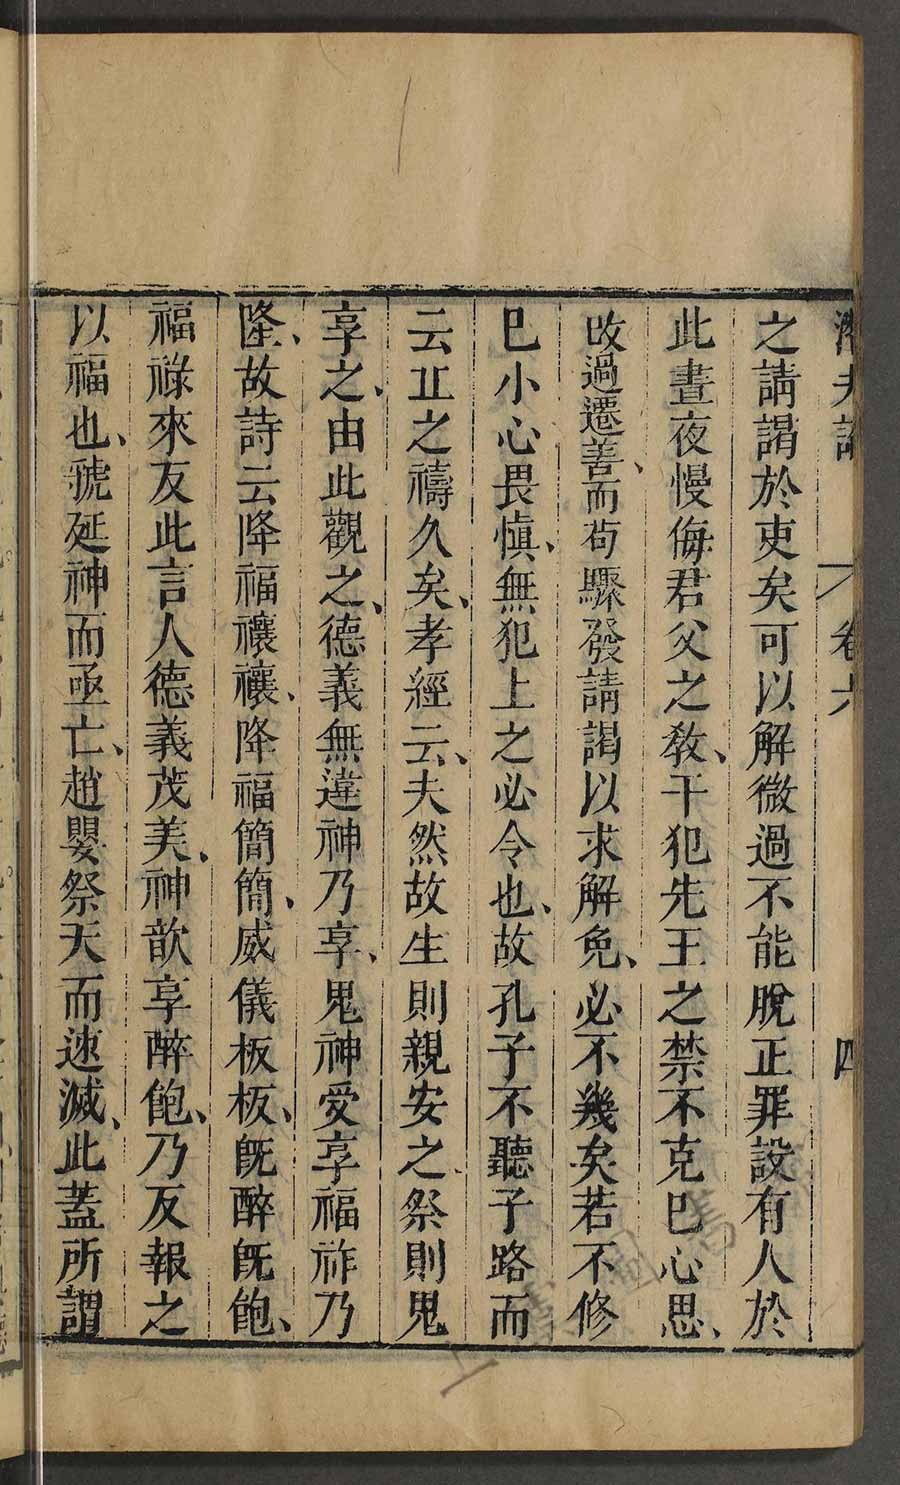 潛夫論 卷六 四
之請謁於吏矣可以解微過不能脫正罪設有人於
此晝夜慢侮君父之敎、干犯先王之禁不克已心思、
改過遷善、而苟驟發請謁以求解免、必不幾矣若不修
已小心畏愼、無犯上之必令也、故孔子不聽子路而
云丠之禱久矣、孝經云、夫然故生則親安之、祭則鬼
享之、由此觀之、德義無違神乃享、鬼神愛享福祚乃
隆、故詩云降福禳禳、降福簡簡、威儀板板、旣醉旣飽、
福祿來反此言人德義茂美、神歆享醉飽、乃反報之
以福也、虢延神而亟亡、趙嬰祭天而速滅、此蓋所謂